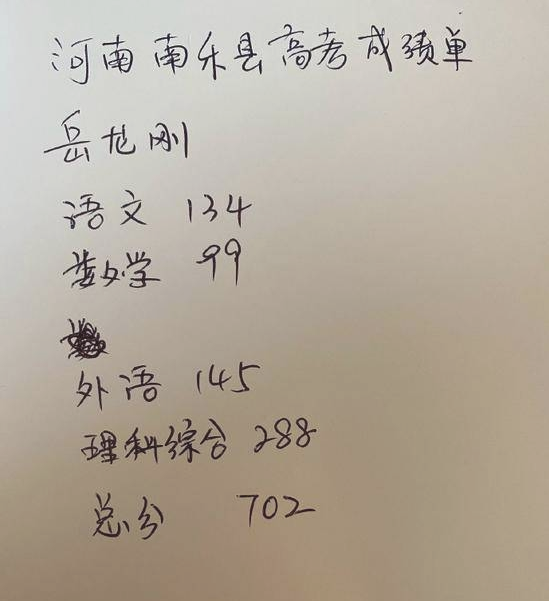 河南南乐县高考成绩单
岳龙刚
语文 134
数学 99
外语 145
理科综合 288
总分 702